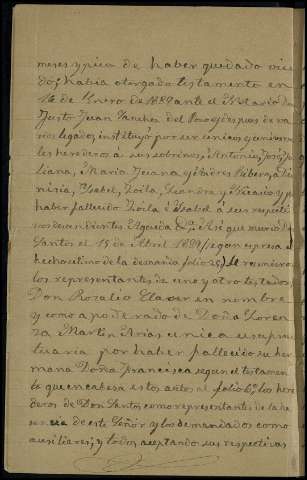 meses y pico de haber quedado viu
do; había otorgado testamento en
16 de Enero de 1889 ante el Notario Don
Justo Juan Sanchez del Pozo y despues de va
rios legados, instituyó por sus únicos y univerva
les herederos á sus sobrinos, Antonio, José, Ju
liana, Maria Juana y Andres Ribera, á
Isabel, Zoila, Leandra y Nicasio y por
haber fallecido Zoila é Isabel á sus respecti
vos descendientes Agueda &ª Así que murió Dn
Santos el 15 de Abril 1889 (segun espresa el
hecho último de la demanda folio 25) Se reunieron
los representantes de uno y otro testador,
Don Rozalio Elacer en nombre
y como apoderado de Doña Loren
za Martin Arias unica usufruc
tuaria por haber fallecido su her
mana Doña Francisca segun el testamen
to que encabeza estos autos al folio 6º, los here
deros de Don Santos como representantes de la he
rencia de este Señor y los demandados como
auxiliares; y todos aceptando sus respectivas